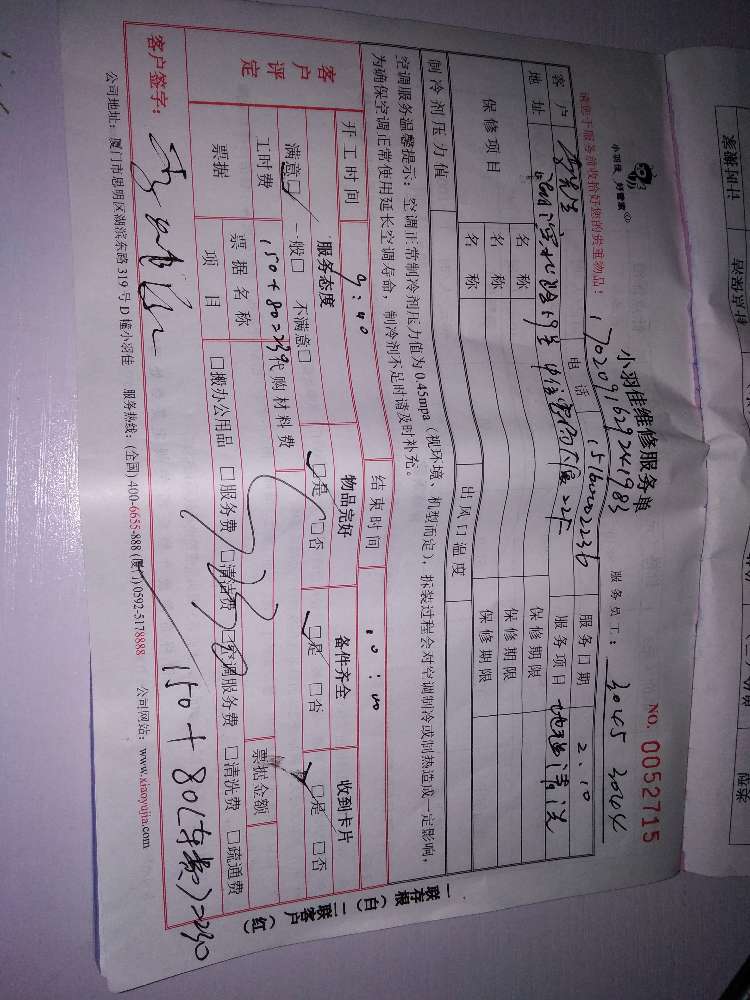 小羽佳维修服务单
小羽佳,好管家
NO. 0052715
请您于服务前收拾好您的贵重物品!
17020916292441983
服务员工: 3045 3044
客户
电话
服务日期 2.10
地址
服务项目 地毯清洗
保修项目 名称 保修期限
名称 保修期限
名称 保修期限
制冷剂压力值 出风口温度
空调服务温馨提示:空调正常制冷剂压力值为0.45mpa(视环境、机型而定),拆装过程会对空调制冷或制热造成一定影响,
为确保空调正常使用延长空调寿命,制冷剂不足时请及时补充。
开工时间 9:40 结束时间 10:00
客户评定 服务态度 物品完好 备件齐全 收到卡片
满意□ 一般□ 不满意□ □是 □否 □是 □否 □是 □否
工时费 150+80=230 代购材料费 230
票据 票据名称 票据金额
项目 □搬办公用品 □服务费 □清洁费 □空调服务费 □清洗费 □疏通费
客户签字:
150+80(车费)=230
公司地址:厦门市思明区湖滨东路319号D幢小羽佳 服务热线:(全国)400-6655-888 (厦门)0592-5178888 公司网站:www.xiaoyujia.com
一联存根(白) 二联客户(红)